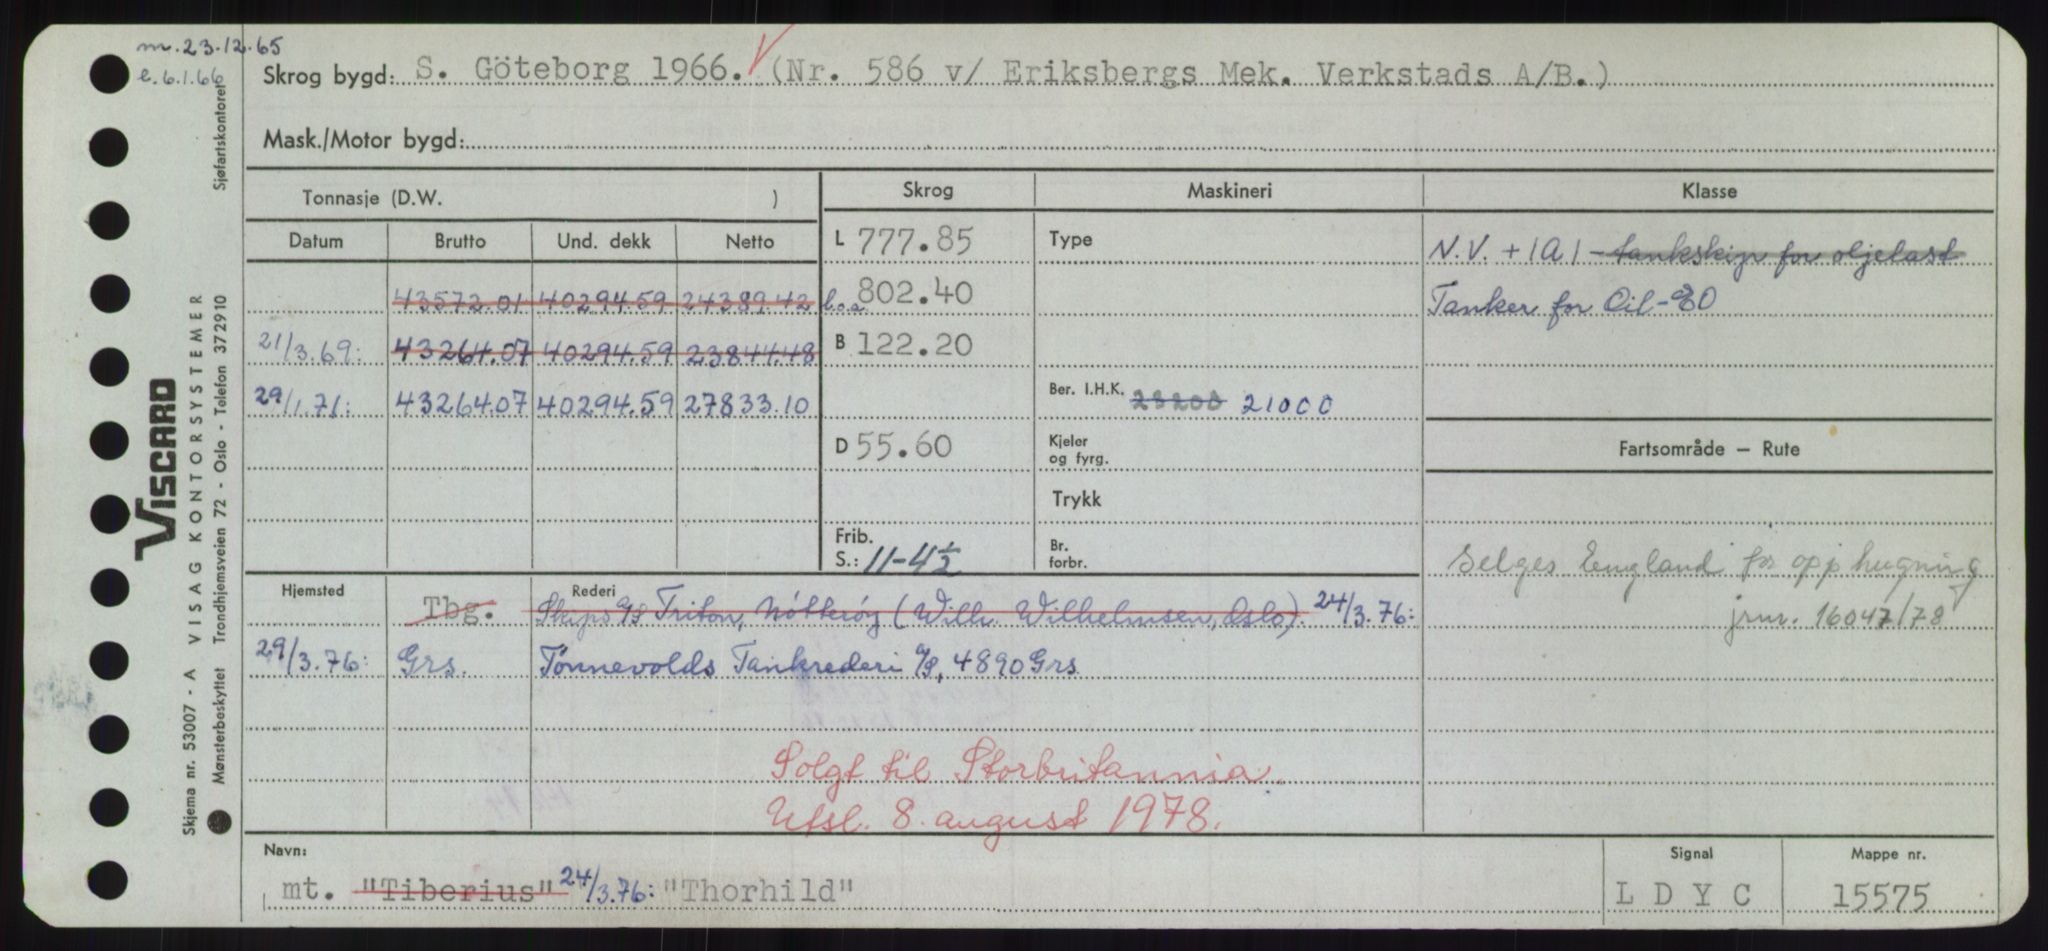 m. 23.12.65
e. 6.1.66
Skrog bygd: S. Göteborg 1966. (Nr. 586 v/ Eriksbergs Mek. Verkstads A/B.)
Mask./Motor bygd:
Tonnasje (D.W. )
Skrog Maskineri Klasse
Datum Brutto Und. dekk Netto
L 777.85
Type
N.V. + 1A1 - tankskip for oljelast
43572.01 40294.59 24389.42
l.o.a. 802.40
Tanker for Oil - EO
21/3.69: 43264.07 40294.59 23844.48
B 122.20
29/1.71: 43264.07 40294.59 27833.10
Ber. I.H.K. 23200 21000
D 55.60
Kjeler og fyrg.
Fartsområde — Rute
Trykk
Frib. S.: 11-4½
Br. forbr.
Selges England for opphugning
jrnr. 16047/78
Hjemsted Rederi
Tbg. Skips A/S Triton, Nötteröy (Wilh. Wilhelmsen, Oslo). 24/3.76:
29/3.76: Grs. Tønnevolds Tankrederi A/S, 4890 Grs.
Solgt til Storbritannia
Utsl. 8. august 1978.
Navn: Signal Mappe nr.
mt. "Tiberius" 24/3.76: "Thorhild" LDYC 15575
VISCARD
Skjema nr. 53007 - A VISAG KONTORSYSTEMER
Mønsterbeskyttet Trondhjemsveien 72 - Oslo - Telefon 372910 Sjøfartskontoret